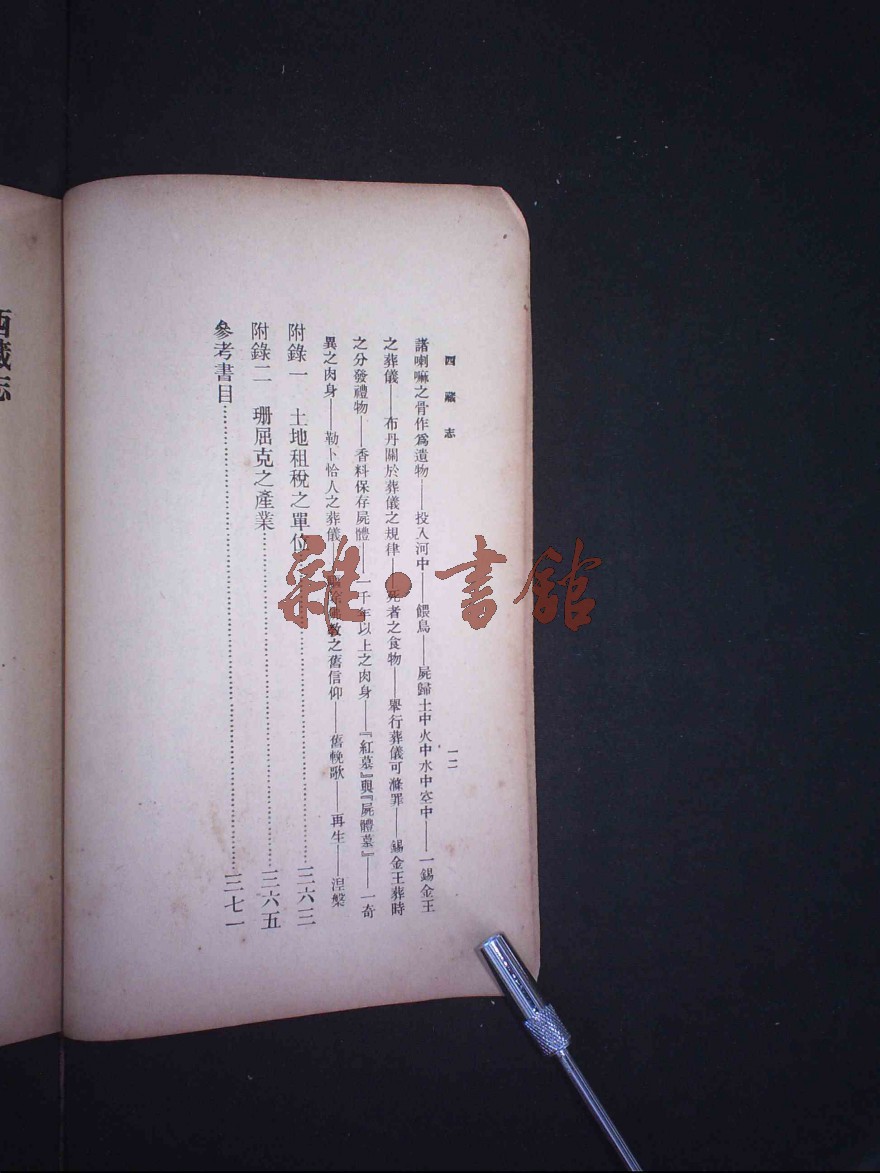 西藏志
一二
諸喇嘛之骨作爲遺物——投入河中——餵鳥——屍歸土中火中水中空中——一錫金王
之葬儀——布丹關於葬儀之規律——死者之食物——舉行葬儀可滌罪——錫金王葬時
之分發禮物——香料保存屍體——一千年以上之肉身——『紅墓』與『屍體墓』——一奇
異之肉身——勒卜恰人之葬儀——教之舊信仰——舊輓歌——再生——涅槃
附錄一 土地租稅之單位……三六三
附錄二 珊屈克之產業……三六五
參考書目……三七一
西藏志
雜·書館